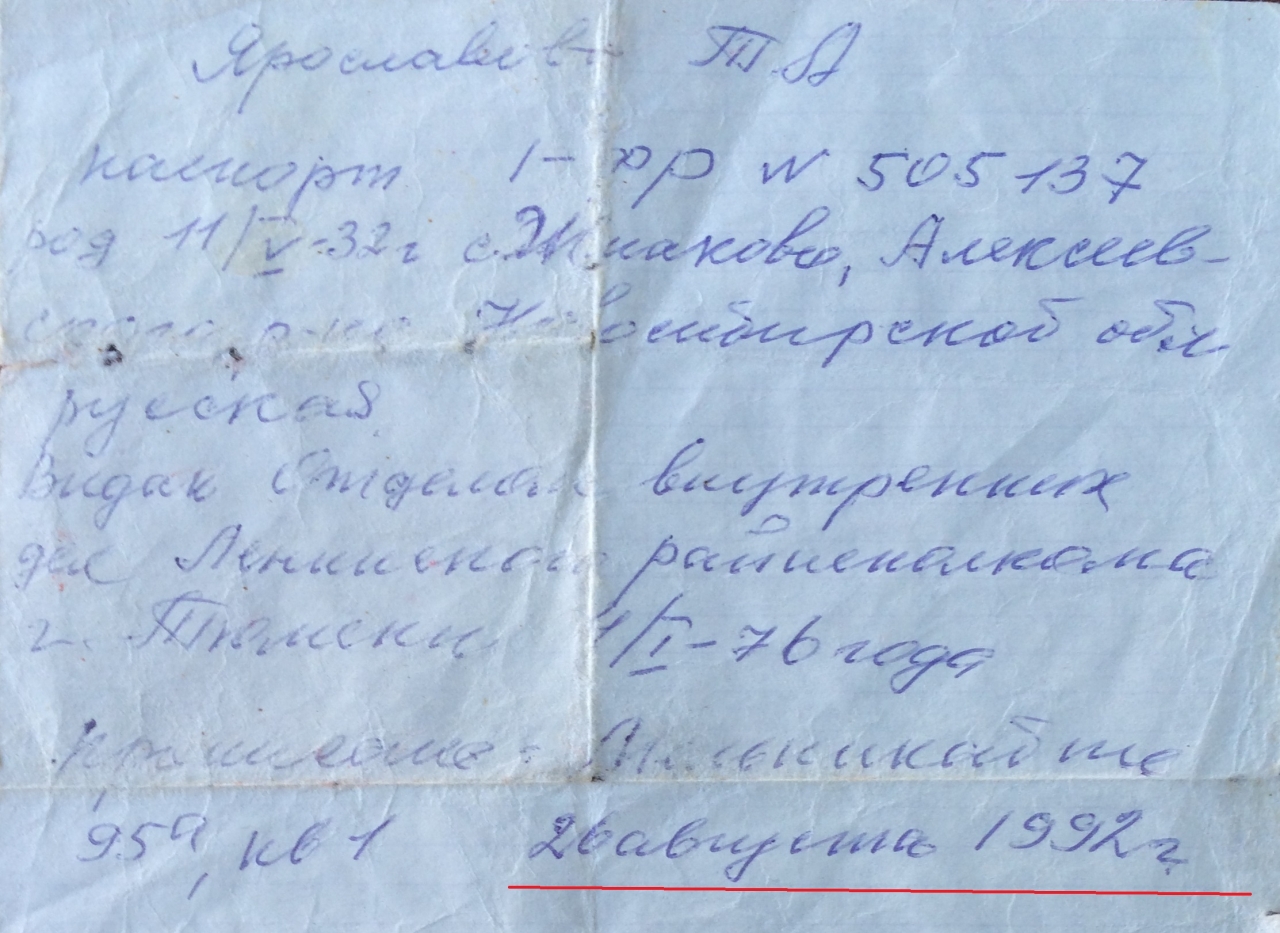 Ярославцева Т. А
паспорт I-ФР N 505137
род 11/V-32г с. Жилаково, Алексеев-
ского р-на Новосибирской обл
русская
Видан Отделом внутренних
дел Ленинского райисполкома
г. Тюмени 1/I-76 года
Мельникайте
95а, кв 1 26 августа 1992 г.